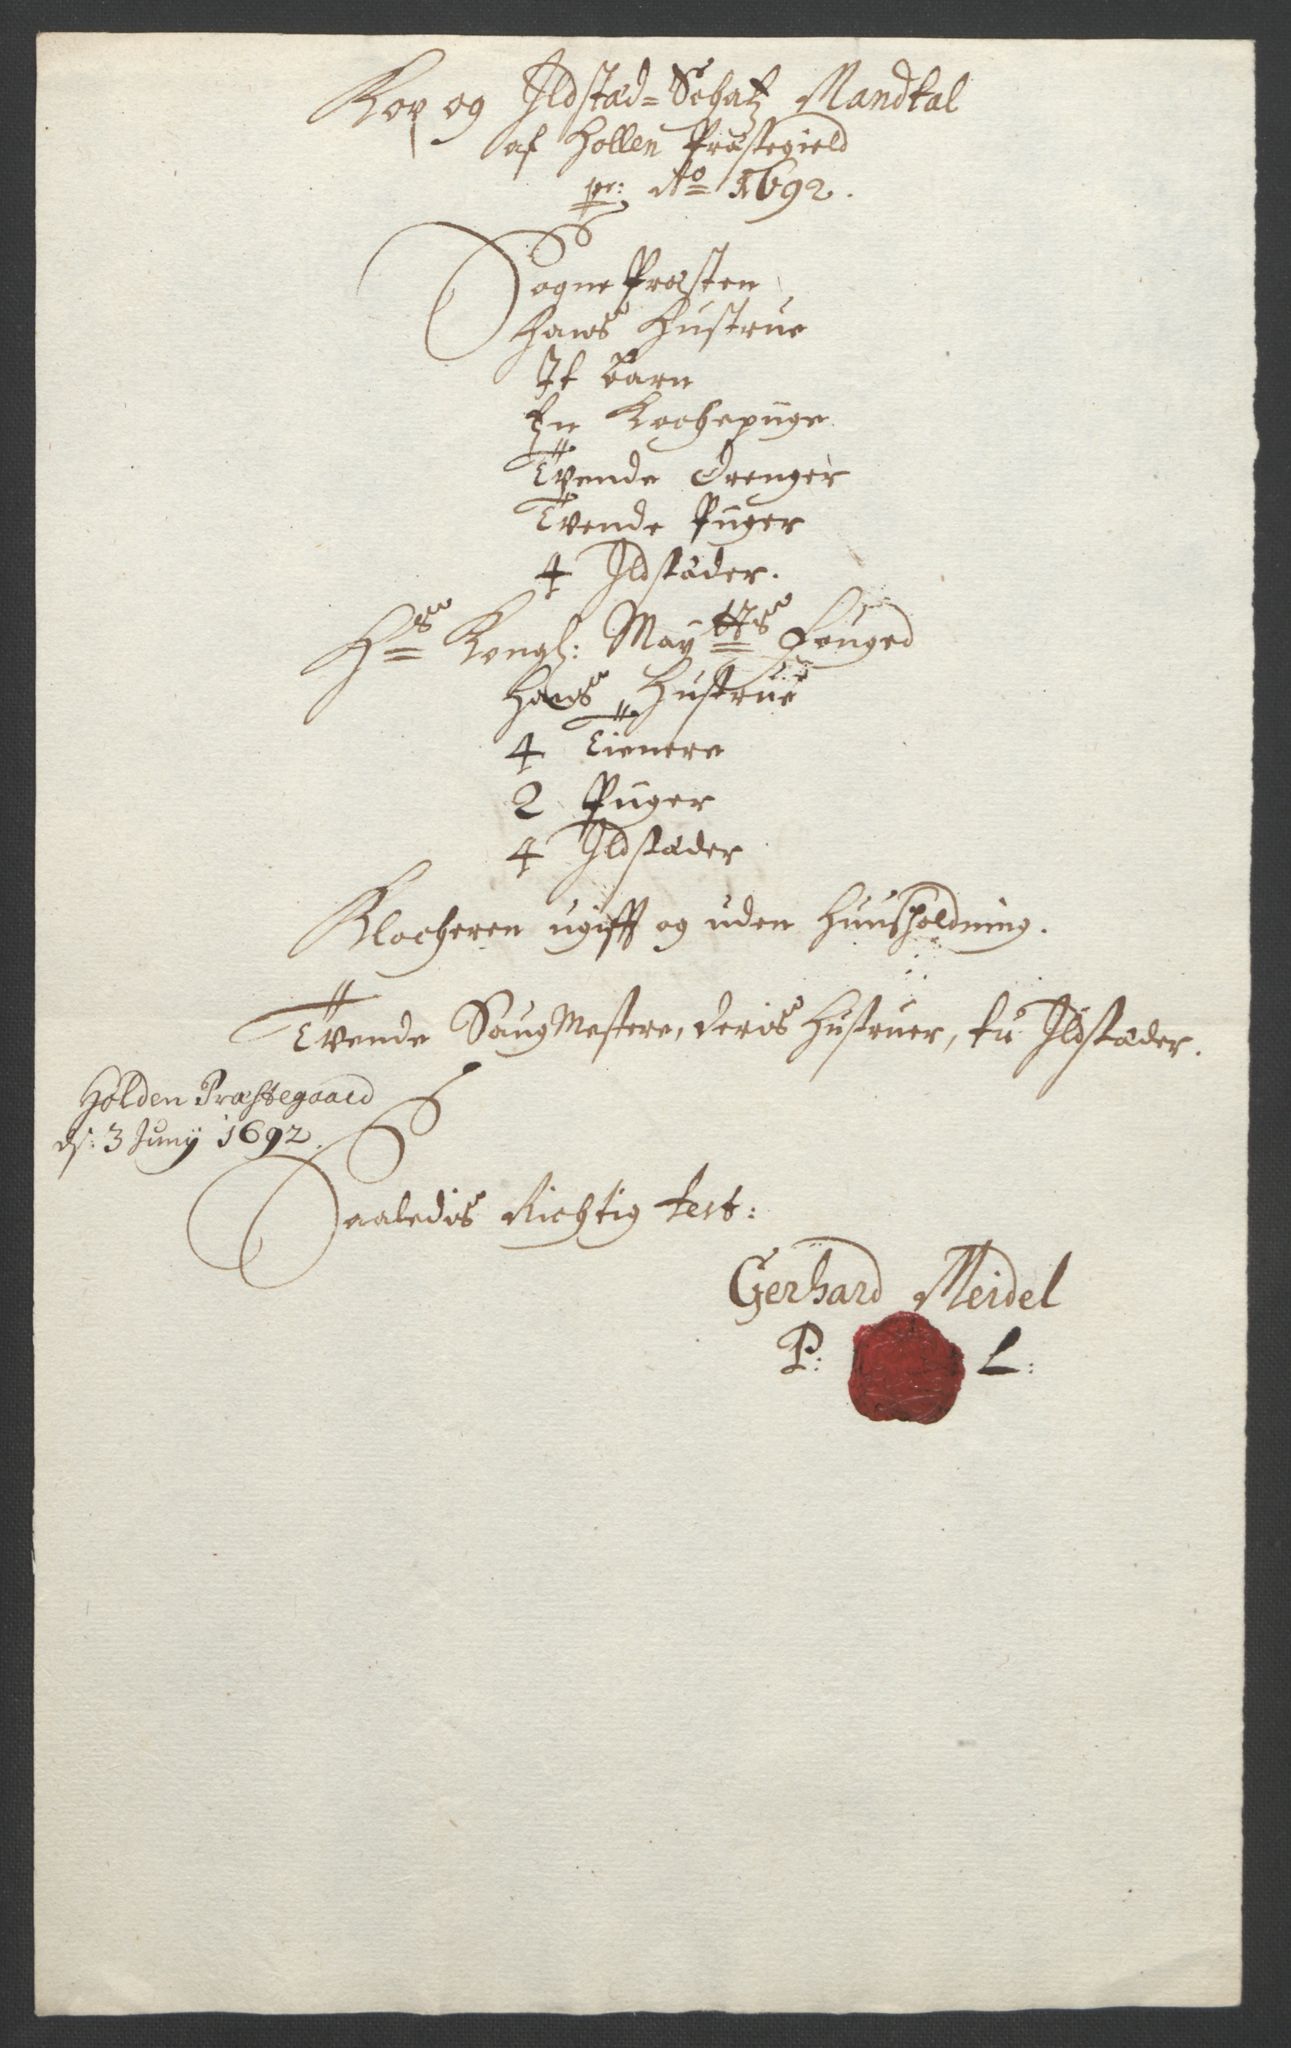 Kop og Ildstæd= Schatz Mandtal
af Hollen Præstegield
pr: Ao 1692.
Sogne Præsten
Hans Hustrue
It barn
En Kochepige
Tvende Drenger
Tvende Piiger
4 Ildstæder.
Hs Kongl: Maytts Fouged
Hans Hustrue
4 Tienere
2 Piiger
4 Ildstæder
Klocheren ugifft og uden Huusholdning.
Tvende Saug Mestere, deris Hustruer, tu Ildstæder.
Holden Præstegaard
ds: 3 Juny 1692.
Saaledis Richtig test:
Gerhard Meidel
P: L: